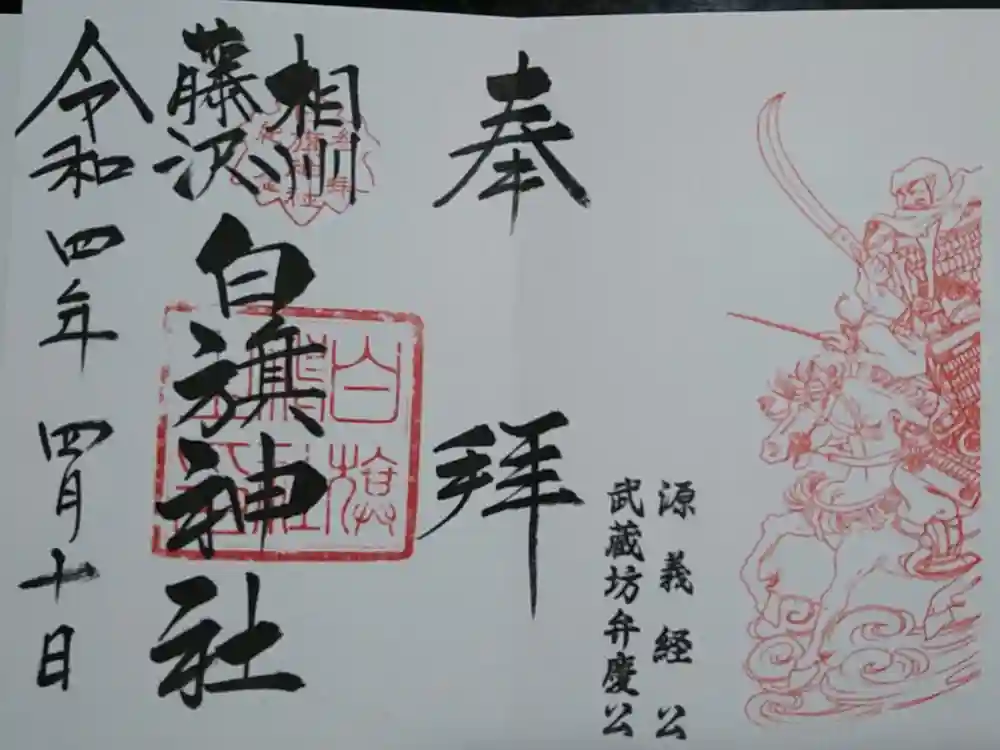 源義経公
武蔵坊弁慶公
奉拝
相州
藤沢
白旗神社
令和四年四月十日